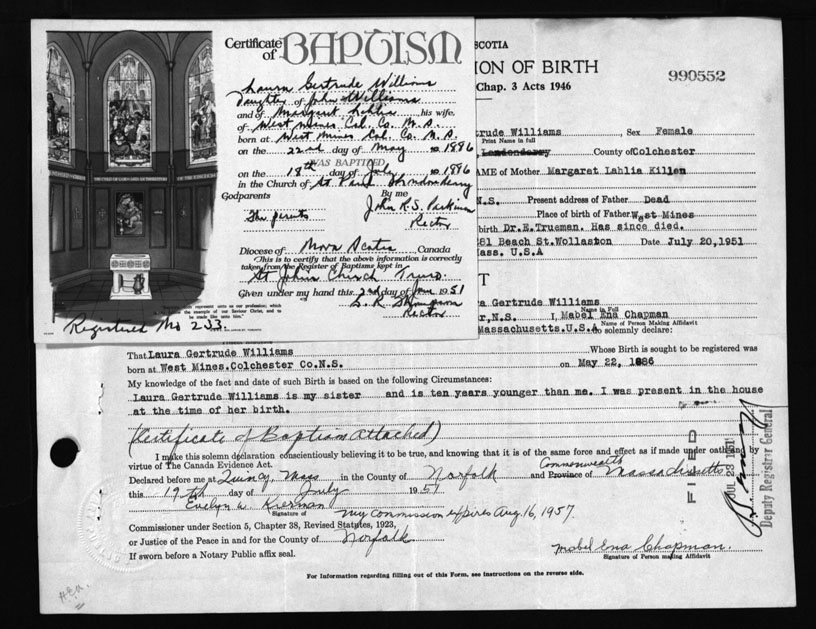 Certificate of BAPTISM
Laura Gertrude Williams
daughter of John Williams
and of Margaret Lahlia his wife.
of West Mines Col. Co. N.S.
born at West Mines Col. Co. N.S.
on the 22nd day of May 1886
WAS BAPTIZED
on the 18th day of July 1886
in the Church of St Paul Londonderry
Godparents By me
The parents John R.S. Parkinson
Rector
Diocese of Nova Scotia, Canada
This is to certify that the above information is correctly
taken from the Register of Baptisms kept in
St John Church Truro.
Given under my hand this 2nd day of June 1951
Rector
represent unto us our profession; which
the example of our Saviour Christ, and to
be made like unto him.
Registered No 233.
SCOTIA
ION OF BIRTH
990552
Chap. 3 Acts 1946
trude Williams Sex Female
Print Name in full
Londonderry County of Colchester
AME of Mother Margaret Lahlia Killen
N.S. Present address of Father Dead
Place of birth of Father West Mines
birth Dr.E.Trueman. Has since died.
281 Beach St.Wollaston Date July 20,1951
Mass. U.S.A
T
a Gertrude Williams
Name in Full
r,N.S. I, Mabel Ena Chapman
Name of Person Making Affidavit
Massachusetts.U.S.A. do solemnly declare:
That Laura Gertrude Williams Whose Birth is sought to be registered was
born at West Mines.Colchester Co.N.S. on May 22, 1886
My knowledge of the fact and date of such Birth is based on the following Circumstances:
Laura Gertrude Williams is my sister and is ten years younger than me. I was present in the house
at the time of her birth.
(Certificate of Baptism attached)
I make this solemn declaration conscientiously believing it to be true, and knowing that it is of the same force and effect as if made under oath and by
virtue of The Canada Evidence Act.
Declared before me at Quincy, Mass in the County of Norfolk and Commonwealth Province of Massachusetts
this 19th day of July 1951
Evelyn L. Kiernan
Signature of My Commission expires Aug. 16, 1957.
Commissioner under Section 5, Chapter 38, Revised Statutes, 1923,
or Justice of the Peace in and for the County of Norfolk
If sworn before a Notary Public affix seal.
Mabel Ena Chapman.
Signature of Person making Affidavit
FILED
JUL 23 1951
Deputy Registrar General
For Information regarding filling out of this Form, see instructions on the reverse side.